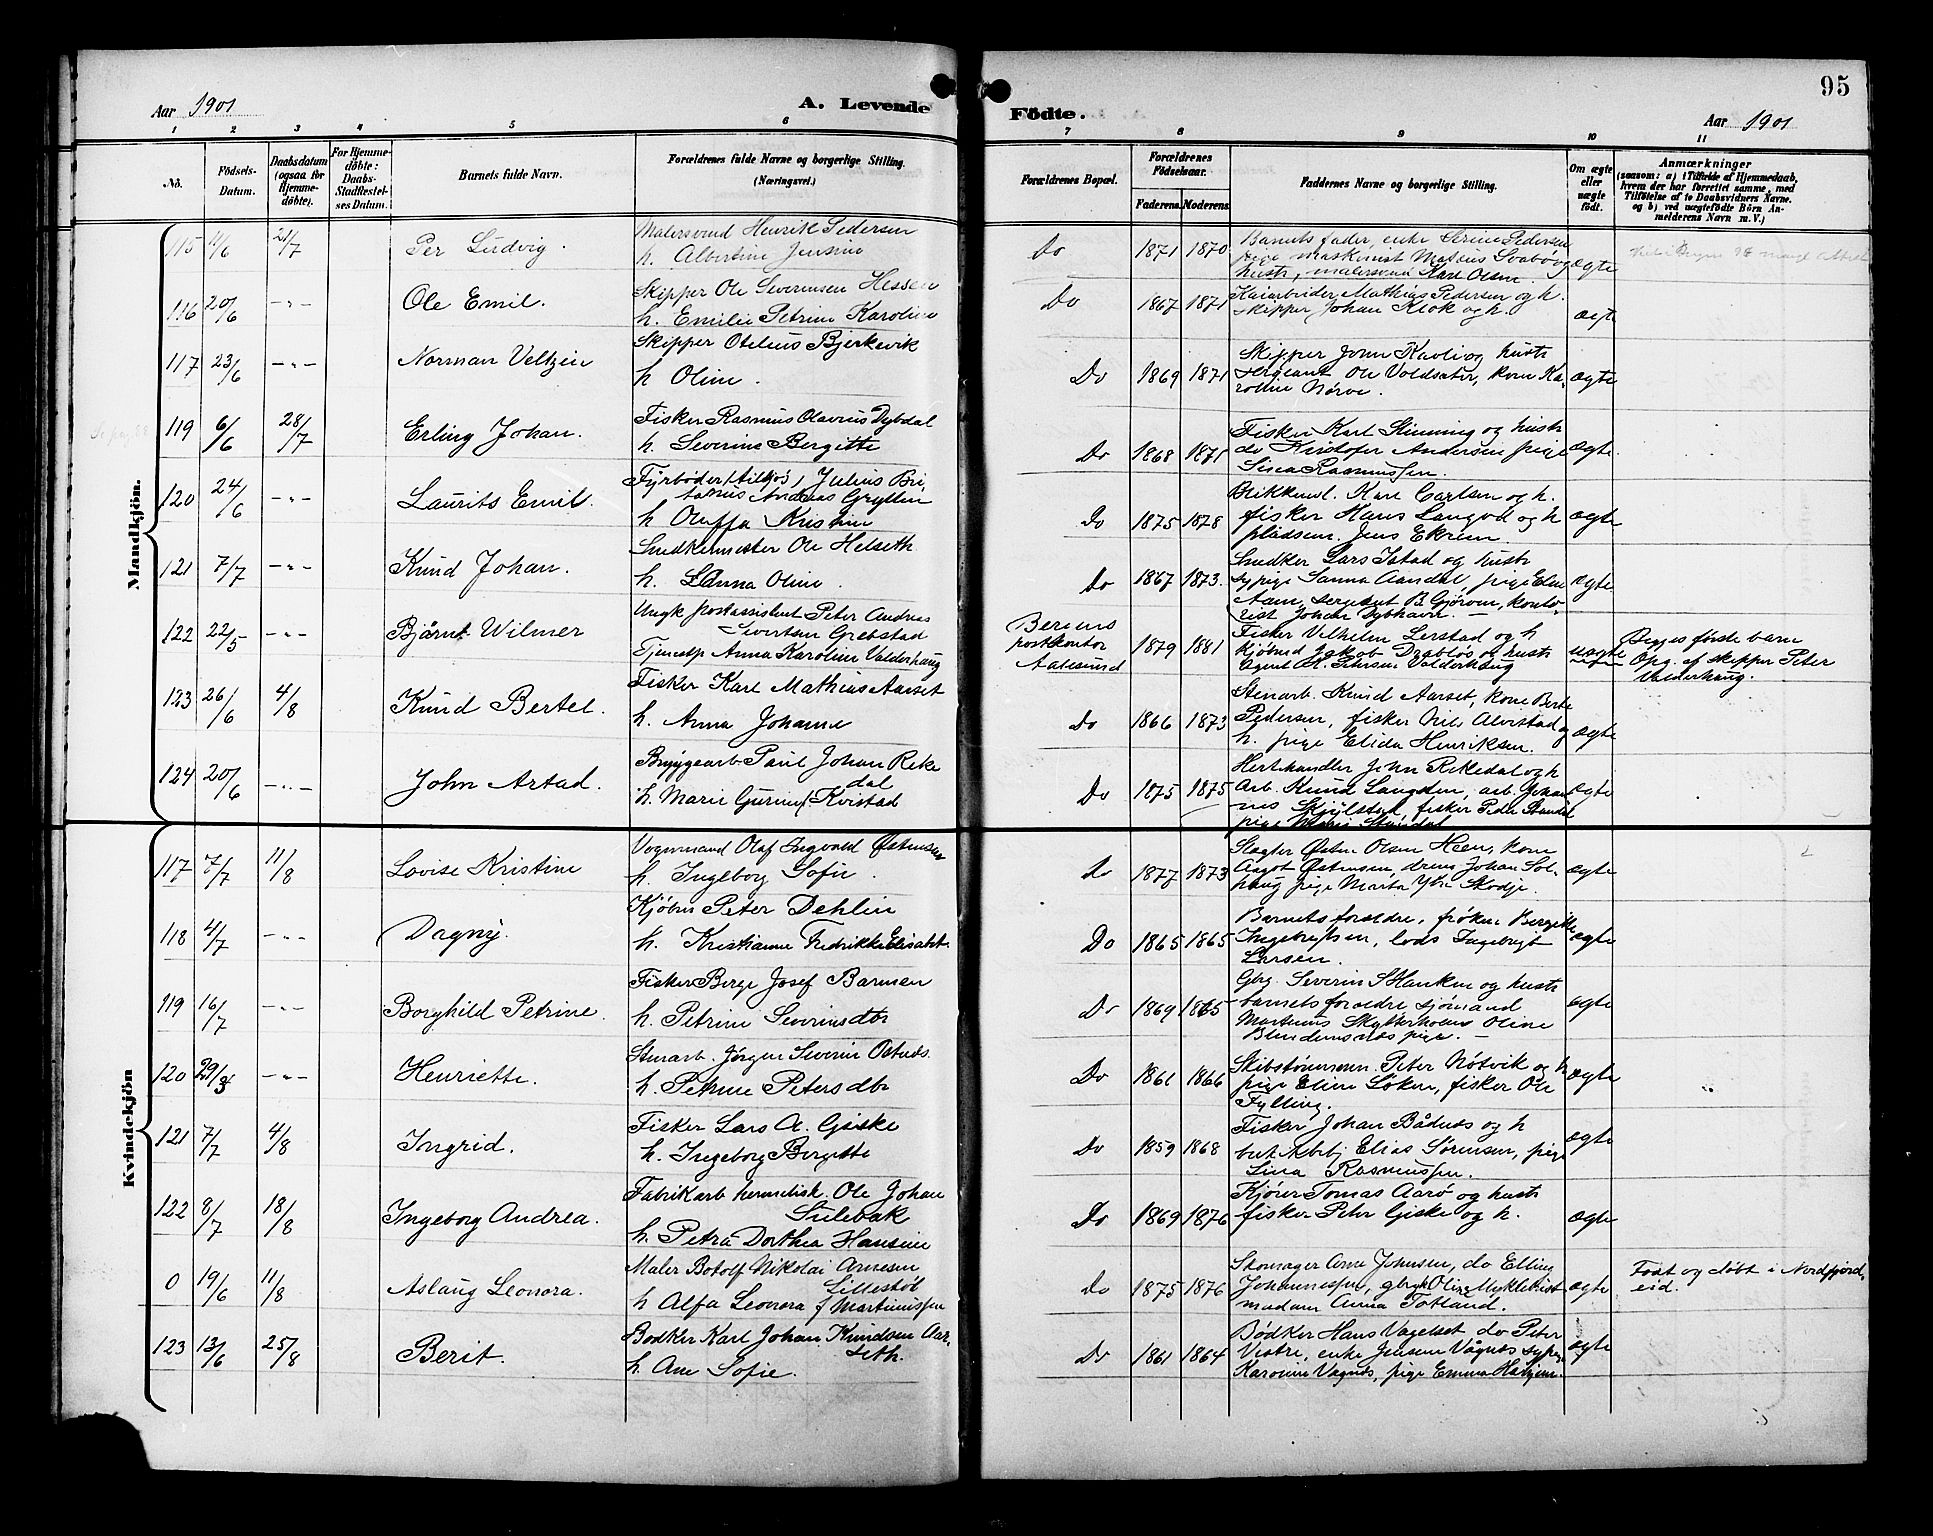 95
Aar 1901
A. Levende
Födte.
Aar 1901
1 2 3 4 5 6 7 8 9 10 11
Nô.
Födsels-Datum.
Daabsdatum (ogsaa for Hjemme-döbte).
For Hjemme-döbte: Daabs-Stadfæstel-ses Datum.
Barnets fulde Navn.
Forældrenes fulde Navne og borgerlige Stilling.
(Næringsvei.)
Forældrenes Bopæl.
Forældrenes Födselsaar.
Faderens. Moderens.
Faddernes Navne og borgerlige Stilling.
Om ægte eller uægte födt.
Anmærkninger
(saasom: a) i Tilfælde af Hjemmedaab,
hvem der har forrettet samme, med
Tilföielse af to Daabsvidners Navne.
og b) ved uægtefödte Börn An-
melderens Navn m. V.)
Mandkjön.
115 4/6 21/7 Per Ludvig.
Malersvend Henrik Pedersen
h. Albertine Jensine
Do 1871 1870
Barnets fader, enke Serine Pedersen
pige maskinist Matias Svabø og
hustr, malersvend Karl Olsen
ægte
116 20/6 -"- Ole Emil.
Skipper Ole Severinsen Hessen
h. Emilie Petrine Karoline
Do 1867 1871
Kaiarbeider Mathias Pedersen og h.
skipper Johan Klok og h.
ægte
117 23/6 -"- Norman Veltzin
Skipper Otelius Bjerkevik
h Oline.
Do 1869 1871
Skipper John Kavli og hustr
sergeant Ole Voldsæter, kone Ka-
roline Nørve.
ægte
119 6/6 28/7 Erling Johan.
Fisker Rasmus Olavius Dybdal
h. Severine Bergitte
Do 1868 1871
Fisker Karl Skinning og hustr
do Kristofer Andersen pige
Sina Rasmussen.
ægte.
120 24/6 -"- Laurits Emil.
Fyrbøder (tilsjøs) Julius Bri
tanus Andreas Gryttin
h Oluffa Kristine
Do 1875 1878
Blikkensl. Karl Carlsen og h.
fisker Hans Langvd og h
pladsm. Jens Ekrem.
ægte
121 7/7 -"- Knud Johan.
Snedkermester Ole Helseth
h. Anna Oline.
Do 1867 1873.
Snedker Lars Istad og hustr
sypige Sanna Aandal, pige Eline
Aam, sergeant B. Gjørven, konto
rist Johan Dybhavn.
ægte
122 22/5 -"- Bjarne Wilmer
Ungk postassistent Peter Andreas
Sivertsen Grebstad
Tjenestp Anna Karoline Valderhaug
postkontor
Aalesund
1879 1881
Fisker Vilhelm Lerstad og h
Kjøbmd Jakob Drabløs og hustr
Agent K. Larsen Valderhaug
uægte
Begges første barn
Opg. af skipper Peter
Valderhaug.
123 26/6 4/8 Knud Bertel.
Fisker Karl Mathias Aarset
h. Anna Johanne
Do 1866 1873
Stenarb. Knud Aarset, kone Berte
Pedersen, fisker Nils Alvestad og
h. pige Elida Henriksen.
ægte
124 20/6 -"- John Artad.
Bryggearb Paul Johan Reke
dal
h. Marie Gurine f. Kvistad
Do 1875 1875
handler John Rekedal og h
Arb. Knud Langsten, arb. Johan
nes Skjilstad, fisker Peder Standal
pige Marie Standal
ægte
Kvindekjön
117 7/7 11/8 Lovise Kristine
Vognmand Olaf Ingvald Østensen
h. Ingeborg Sofie.
do 1877 1873
Slagter Østen Olsen Heen, kone
Aagot Østensen, dreng Johan Sol-
haug pige Marta Ytre Skodje.
ægte
118 4/7 -"- Dagny.
Kjøbm Peter Dehlin
h. Kristianne Fredrikke Elisabet
Do 1865 1865
Barnets forældre, frøken Bergitte
Ingebrigtsen, lods Ingebrigt
Larsen.
ægte
119 16/7 -"- Borghild Petrine.
Fisker Berge Josef Barmen
h. Petrine Severinsdtr
Do 1869 1865
Gbg. Severin S Hanken og hustr
barnets forældre, sjømand
Martinus Skytterholm Oline
Blindemsnæs pige.
ægte
120 29/3 -"- Henriette.
Stenarb. Jørgen Severin Ostnes.
h. Petrine Petersdtr
Do 1861 1866
Skibstømmerm. Peter Nøtvik og h
pige Eline Løken, fisker Ole
Fylling.
ægte
121 7/7 4/8 Ingrid.
Fisker Lars A. Giske
h. Ingeborg Bergitte
Do 1859 1868
Fisker Johan Bådnes og h
Elias Sørensen, pige
Lina Rasmussen.
ægte
122 8/7 18/8 Ingeborg Andrea.
Fabrikarb hermetisk. Ole Johan
Sulebak
h. Petra Dorthea Hansine
Do 1869 1876
Kjører Tomas Aarø og hustr
fisker Peter Giske og h.
ægte
0 19/6 11/8 Aslaug Leonora.
Maler Botolf Nikolai Arnesen
Lillestøl
h Alfa Leonora f Martinussen
Do 1875 1876
Skomager Arne Johnsen, do Elling
Johannessen, gbrpk Oline Myklebust
madam Anna Totland.
ægte
Født og døbt i Nordfjord-
eid.
123 13/6 25/8 Berit.
Bødker Karl Johan Knudsen Aar-
seth.
h. Ane Sofie.
Do 1861 1864
Bødker Hans Vagelset do Peter
Vestre, enke Jensine Vågnes sypige
Karoline Vagnes, pige Emma Hatlem.
ægte